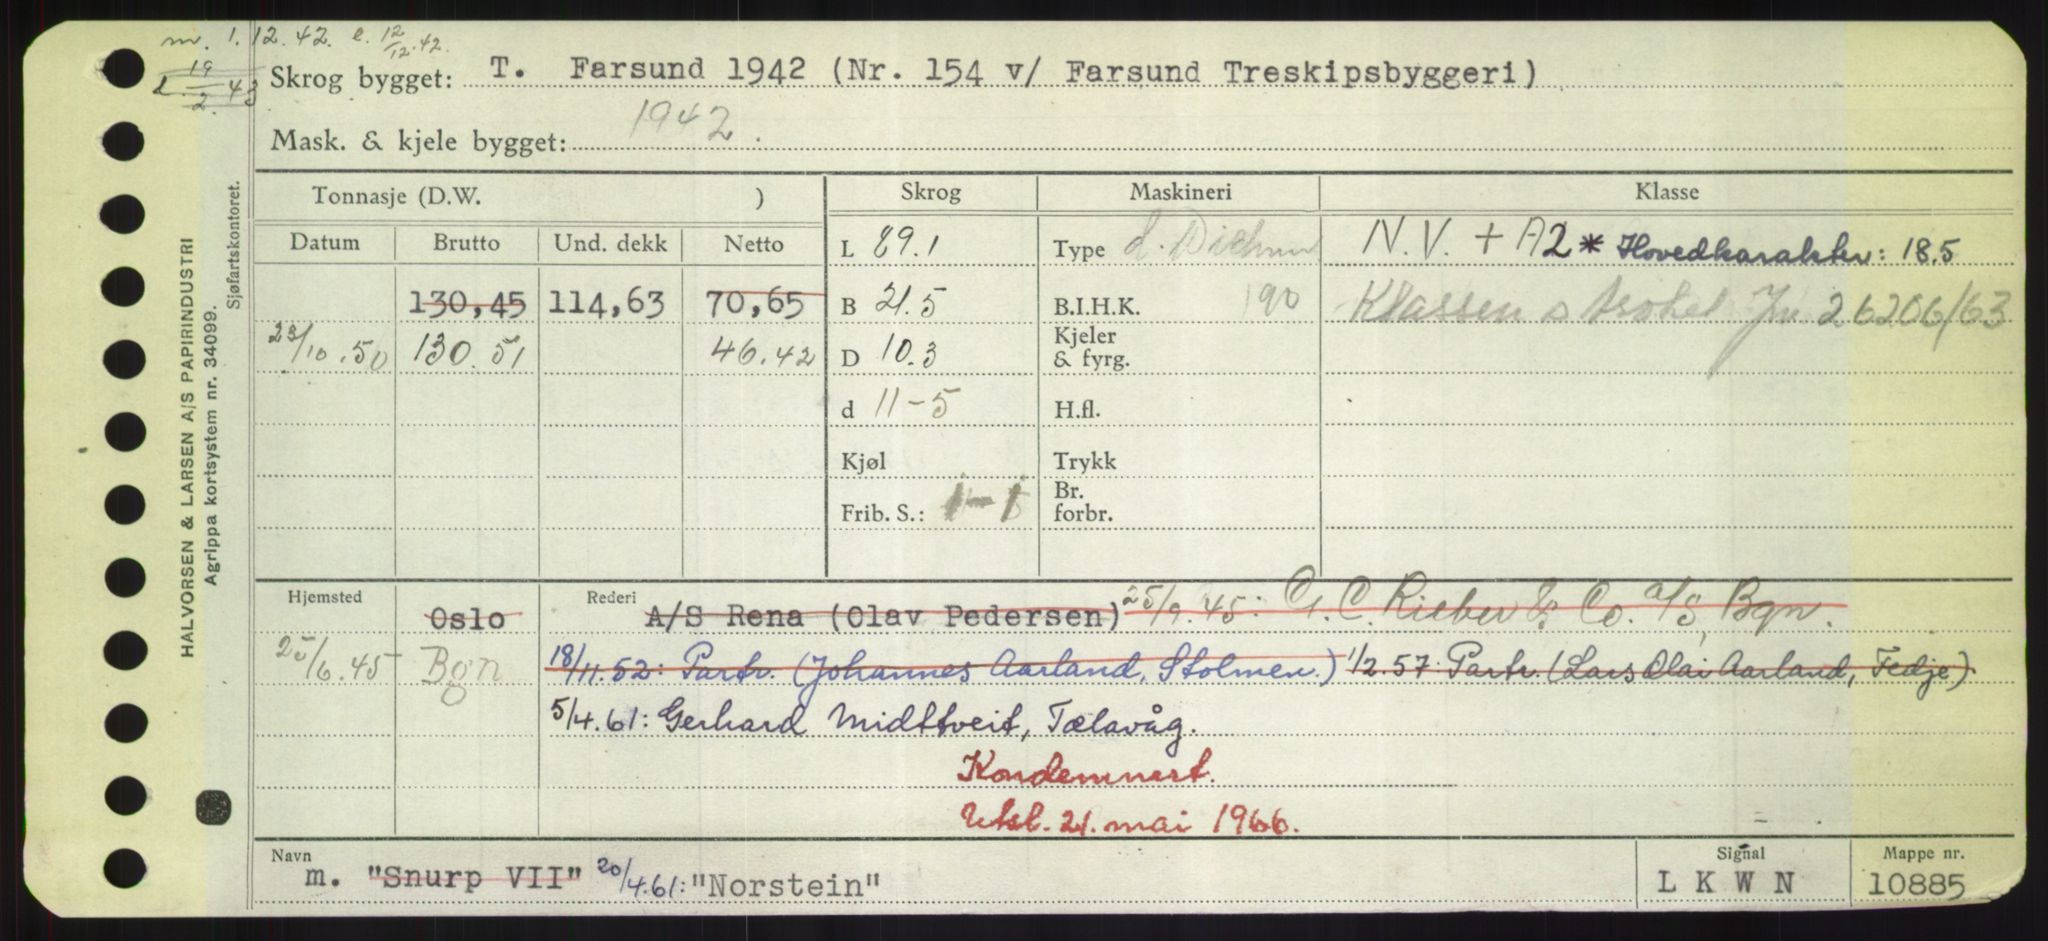 m. 1.12.42. e. 12/12.42.
l. 19/2 43
Skrog bygget: T. Farsund 1942 (Nr. 154 v/ Farsund Treskipsbyggeri)
Mask. & kjele bygget: 1942.
Tonnasje (D.W. ) Skrog Maskineri Klasse
Datum Brutto Und. dekk Netto L 89.1 Type N.V. + A2 * Hovedkarakter: 18.5
130,45 114,63 70,65 B 21.5 B.I.H.K. 190 Klassen strøket Jnr 26206/63
23/10.50 130.51 46.42 D 10.3 Kjeler & fyrg.
d 11-5 H.fl.
Kjøl Trykk
Frib. S.: 1-1 Br. forbr.
Hjemsted Oslo Rederi A/S Rena (Olav Pedersen) 25/9.45: G.C. Rieber & Co. a/s, Bgn.
25/6.45 Bgn 18/11.52: Partr. (Johannes Aarland, Stolmen.) 1/2.57: Partr. (Lars Olai Aarland, Fedje)
5/4.61: Gerhard Midttveit, Tælavåg.
Kondemnert.
Utsl. 21. mai 1966.
Navn m. "Snurp VII" 20/4.61: "Norstein" Signal L K W N Mappe nr. 10885
HALVORSEN & LARSEN A/S PAPIRINDUSTRI
Agrippa kortsystem nr. 34099.
Sjøfartskontoret.